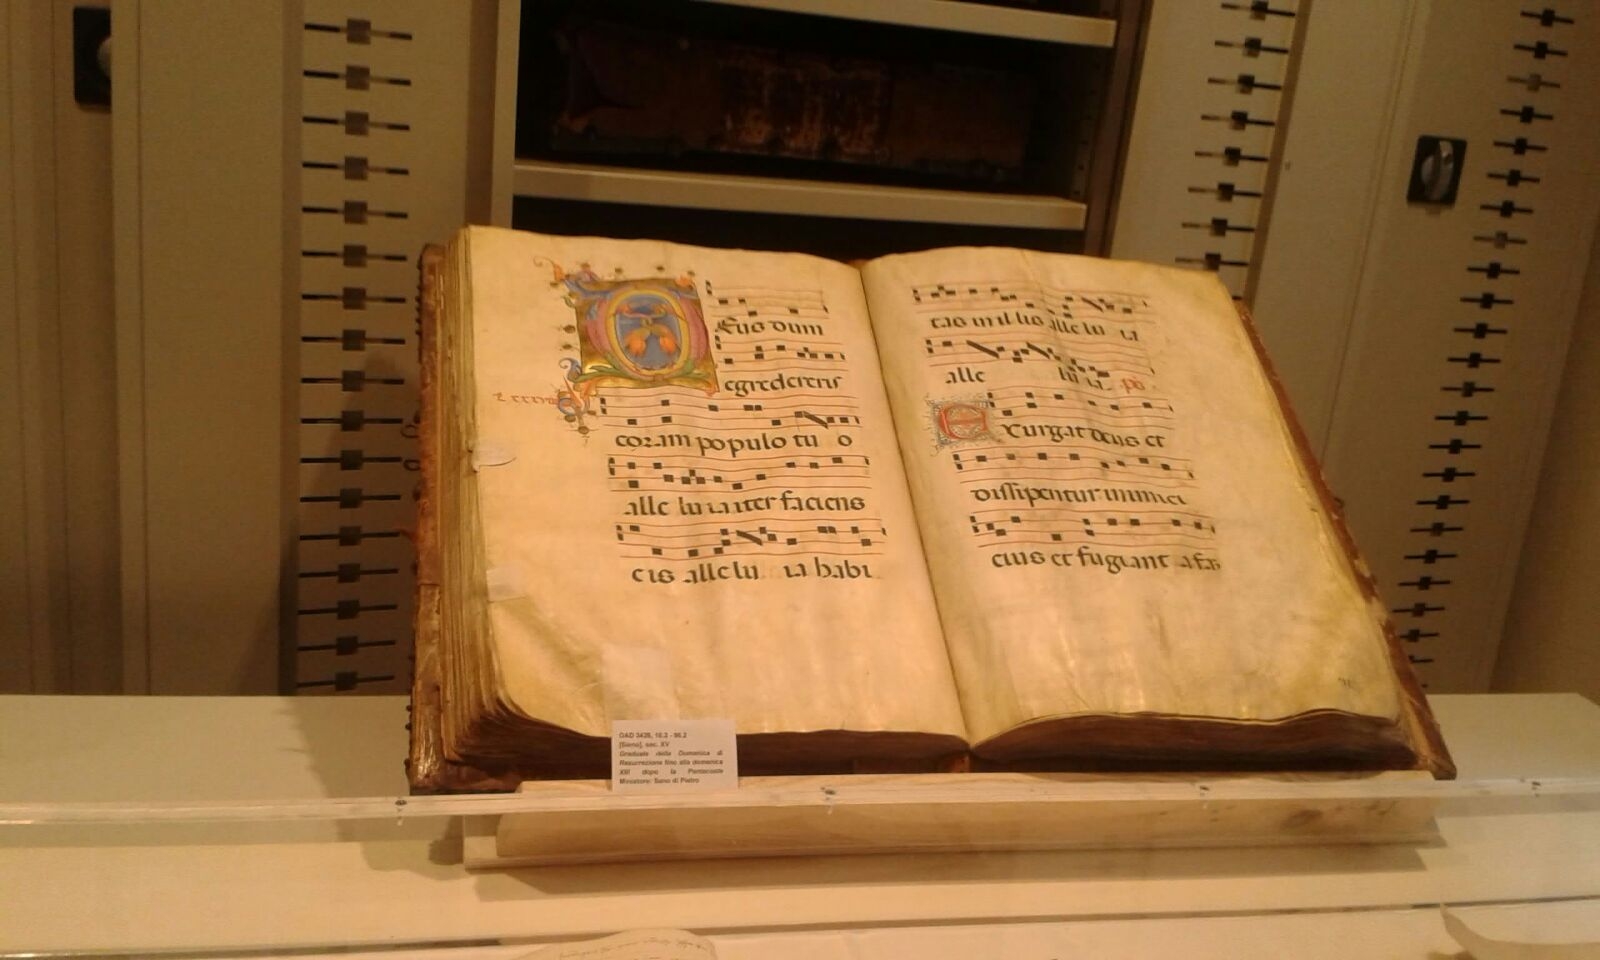 Eus dum
egredereris
coram populo tu o
alle lu ia iter faciens
eis alle lu ia habi
tas in il lis alle lu ia
alle lu ia. ps
Exurgat deus et
dissipentur inimici
eius et fugiant a fa
OAD 3428, 16.2 - 96.2
[Siena], sec. XV
Graduale della Domenica di
Resurrezione fino alla domenica
XIII dopo la Pentecoste
Miniatore: Sano di Pietro